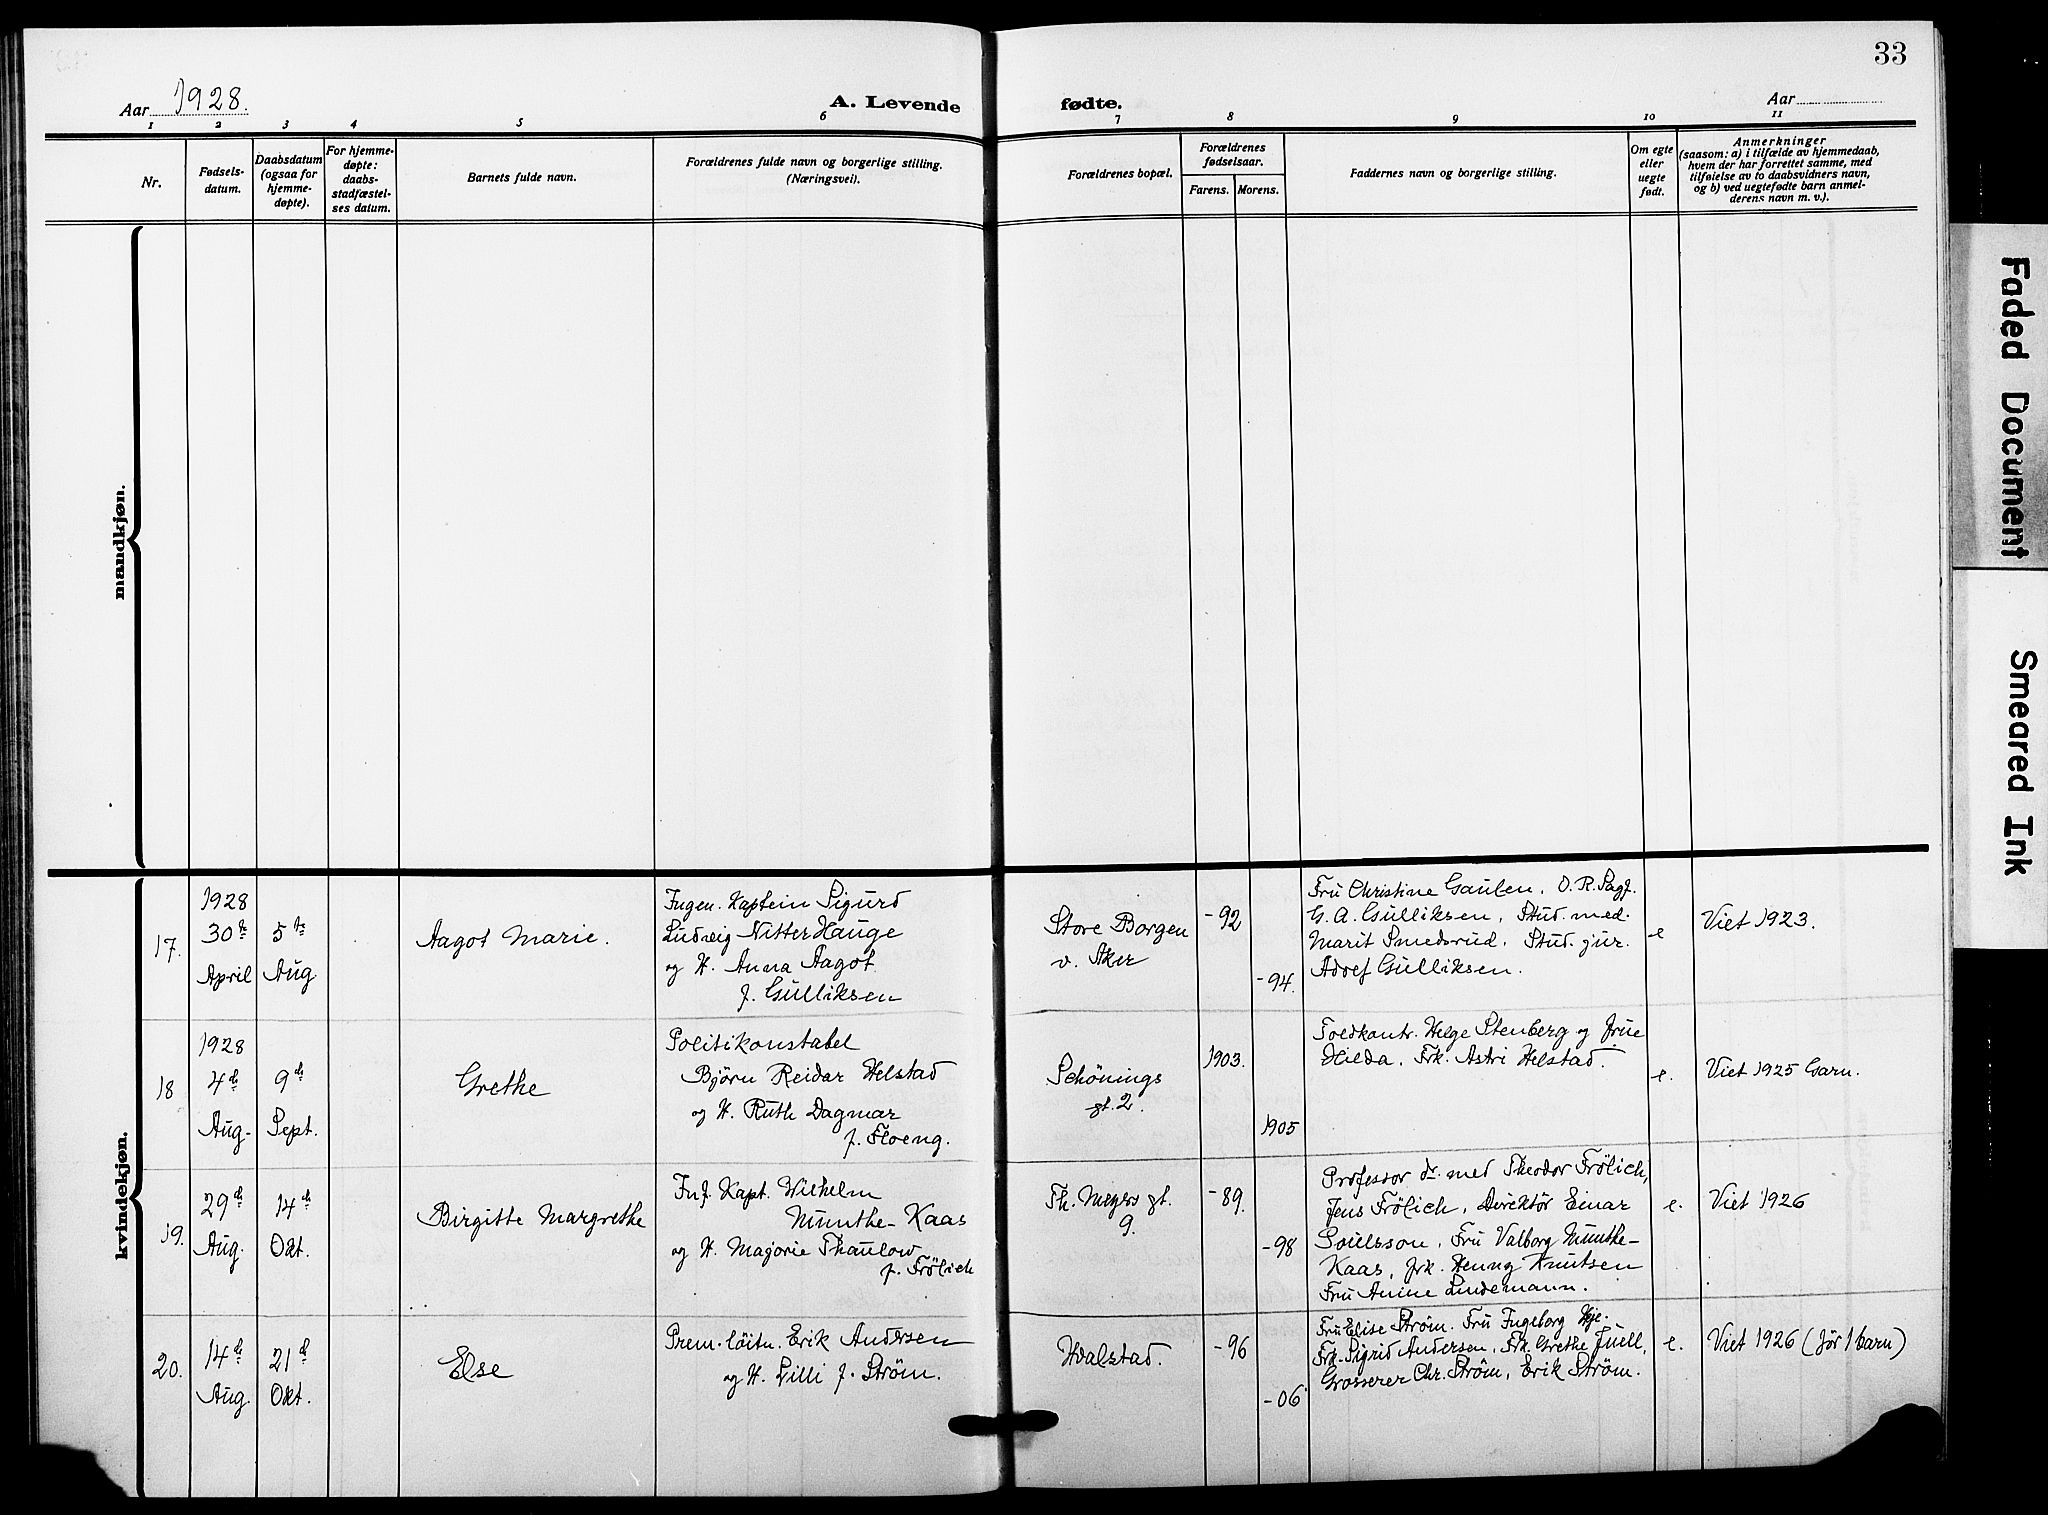 33
Aar 1928.
A. Levende fødte.
Aar
1 2 3 4 5 6 7 8 9 10 11
Nr.
Fødsels-
datum.
Daabsdatum
(ogsaa for
hjemme-
døpte).
For hjemme-
døpte:
daabs-
stadfæstel-
ses datum.
Barnets fulde navn.
Forældrenes fulde navn og borgerlige stilling.
(Næringsvei).
Forældrenes bopæl.
Forældrenes
fødselsaar.
Farens. Morens.
Faddernes navn og borgerlige stilling.
Om egte
eller
uegte
født.
Anmerkninger
(saasom: a) i tilfælde av hjemmedaab,
hvem der har forrettet samme, med
tilføielse av to daabsvidners navn,
og b) ved uegtefødte barn anmel-
derens navn m. v.).
mandkjøn.
kvindekjøn.
17.
1928
30te
April
5te
Aug
Aagot Marie.
Ingen. Kaptein Sigurd
Ludvig Nitter Hauge
og H. Anna Aagot
f. Gulliksen
Store Borgen
v. Aker
-92
-94.
Fru Christine Gaulen, O.R.Sagf.
G. A. Gulliksen, Stud. med.
Marit Smedsrud, Stud. jur.
Adolf Gulliksen.
e
Viet 1923.
18
1928
4de
Aug.
9de
Sept.
Grethe
Politikonstabel
Bjørn Reidar Helstad
og H. Ruth Dagmar
f. Floeng.
Schönings
gt. 2.
1903.
1905
Toldkontr. Helge Stenberg og frue
Hilda, Frk. Astri Helstad.
e.
Viet 1925 Garn.
19.
29de
Aug.
14de
Okt.
Birgitte Margrethe
Inf. Kapt. Wilhelm
Munthe-Kaas
og H. Majorie Thaulow
f. Frölich
Th. Meyers gt.
9.
-89.
-98
Professor dr. med Theodor Frölich,
Jens Frölich, Direktör Einar
Poulsson, Fru Valborg Munthe-
Kaas, frk. Henny Knutsen
Fru Anine Lindemann.
e.
Viet 1926
20.
14de
Aug.
21de
Okt.
Else
Prem.-löitn. Erik Andersen
og H. Lilli f. Strøm.
Hvalstad.
-96
-06
Fru Elise Strøm. Fru Ingeborg
Frk. Sigrid Andersen, Frk. Grethe Juell,
Grosserer Chr. Strøm, Erik Strøm.
e.
Viet 1926 (før 1 barn)
Faded Document
Smeared Ink